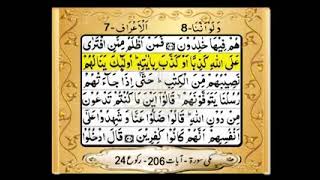 وَلَوْ اَنَّنَا-8 اَلْاَعْرَاف-7
هُمْ فِيْهَا خٰلِدُوْنَ فَمَنْ اَظْلَمُ مِمَّنِ افْتَرٰى
عَلَى اللّٰهِ كَذِبًا اَوْ كَذَّبَ بِاٰيٰتِهٖ اُولٰٓئِكَ يَنَالُهُمْ
نَصِيْبُهُمْ مِّنَ الْكِتٰبِ حَتّٰۤى اِذَا جَآءَتْهُمْ
رُسُلُنَا يَتَوَفَّوْنَهُمْ قَالُوْۤا اَيْنَ مَا كُنْتُمْ تَدْعُوْنَ
مِنْ دُوْنِ اللّٰهِ قَالُوْا ضَلُّوْا عَنَّا وَشَهِدُوْا عَلٰۤى
اَنْفُسِهِمْ اَنَّهُمْ كَانُوْا كٰفِرِيْنَ قَالَ ادْخُلُوْا
مکی سورۃ - آیات 206 - رکوع 24